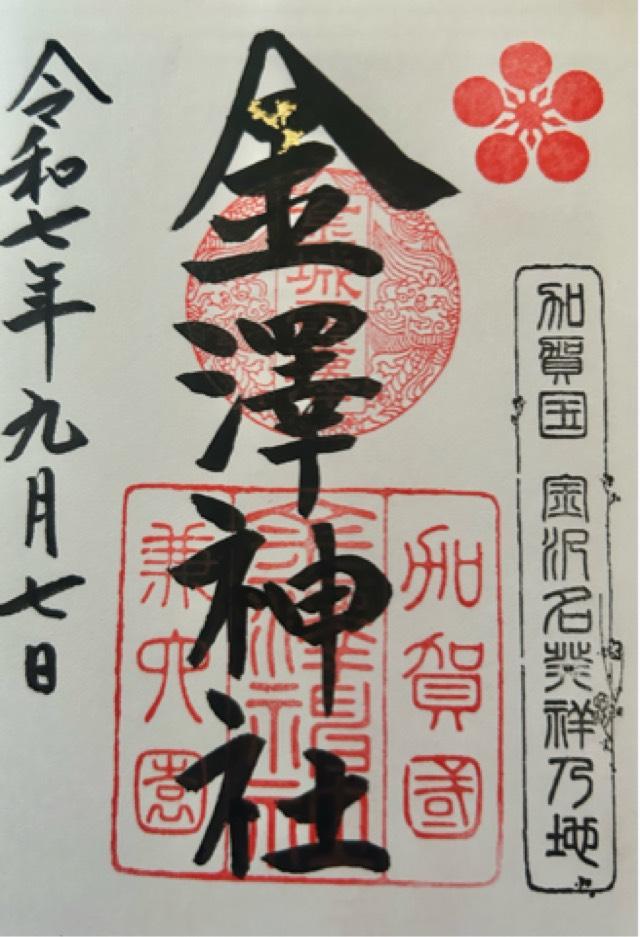 加賀国 金沢名発祥乃地
金澤神社
加賀國
金澤神社
兼六園
令和七年九月七日